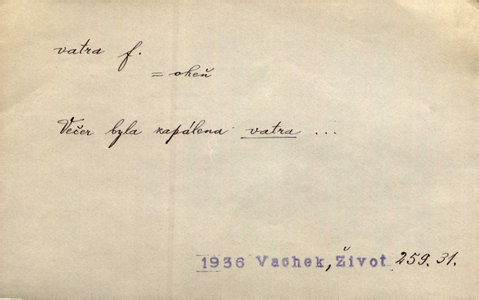 vatra f.
= oheň
Večer byla zapálena vatra ...
1936 Vachek, Život 259.31.